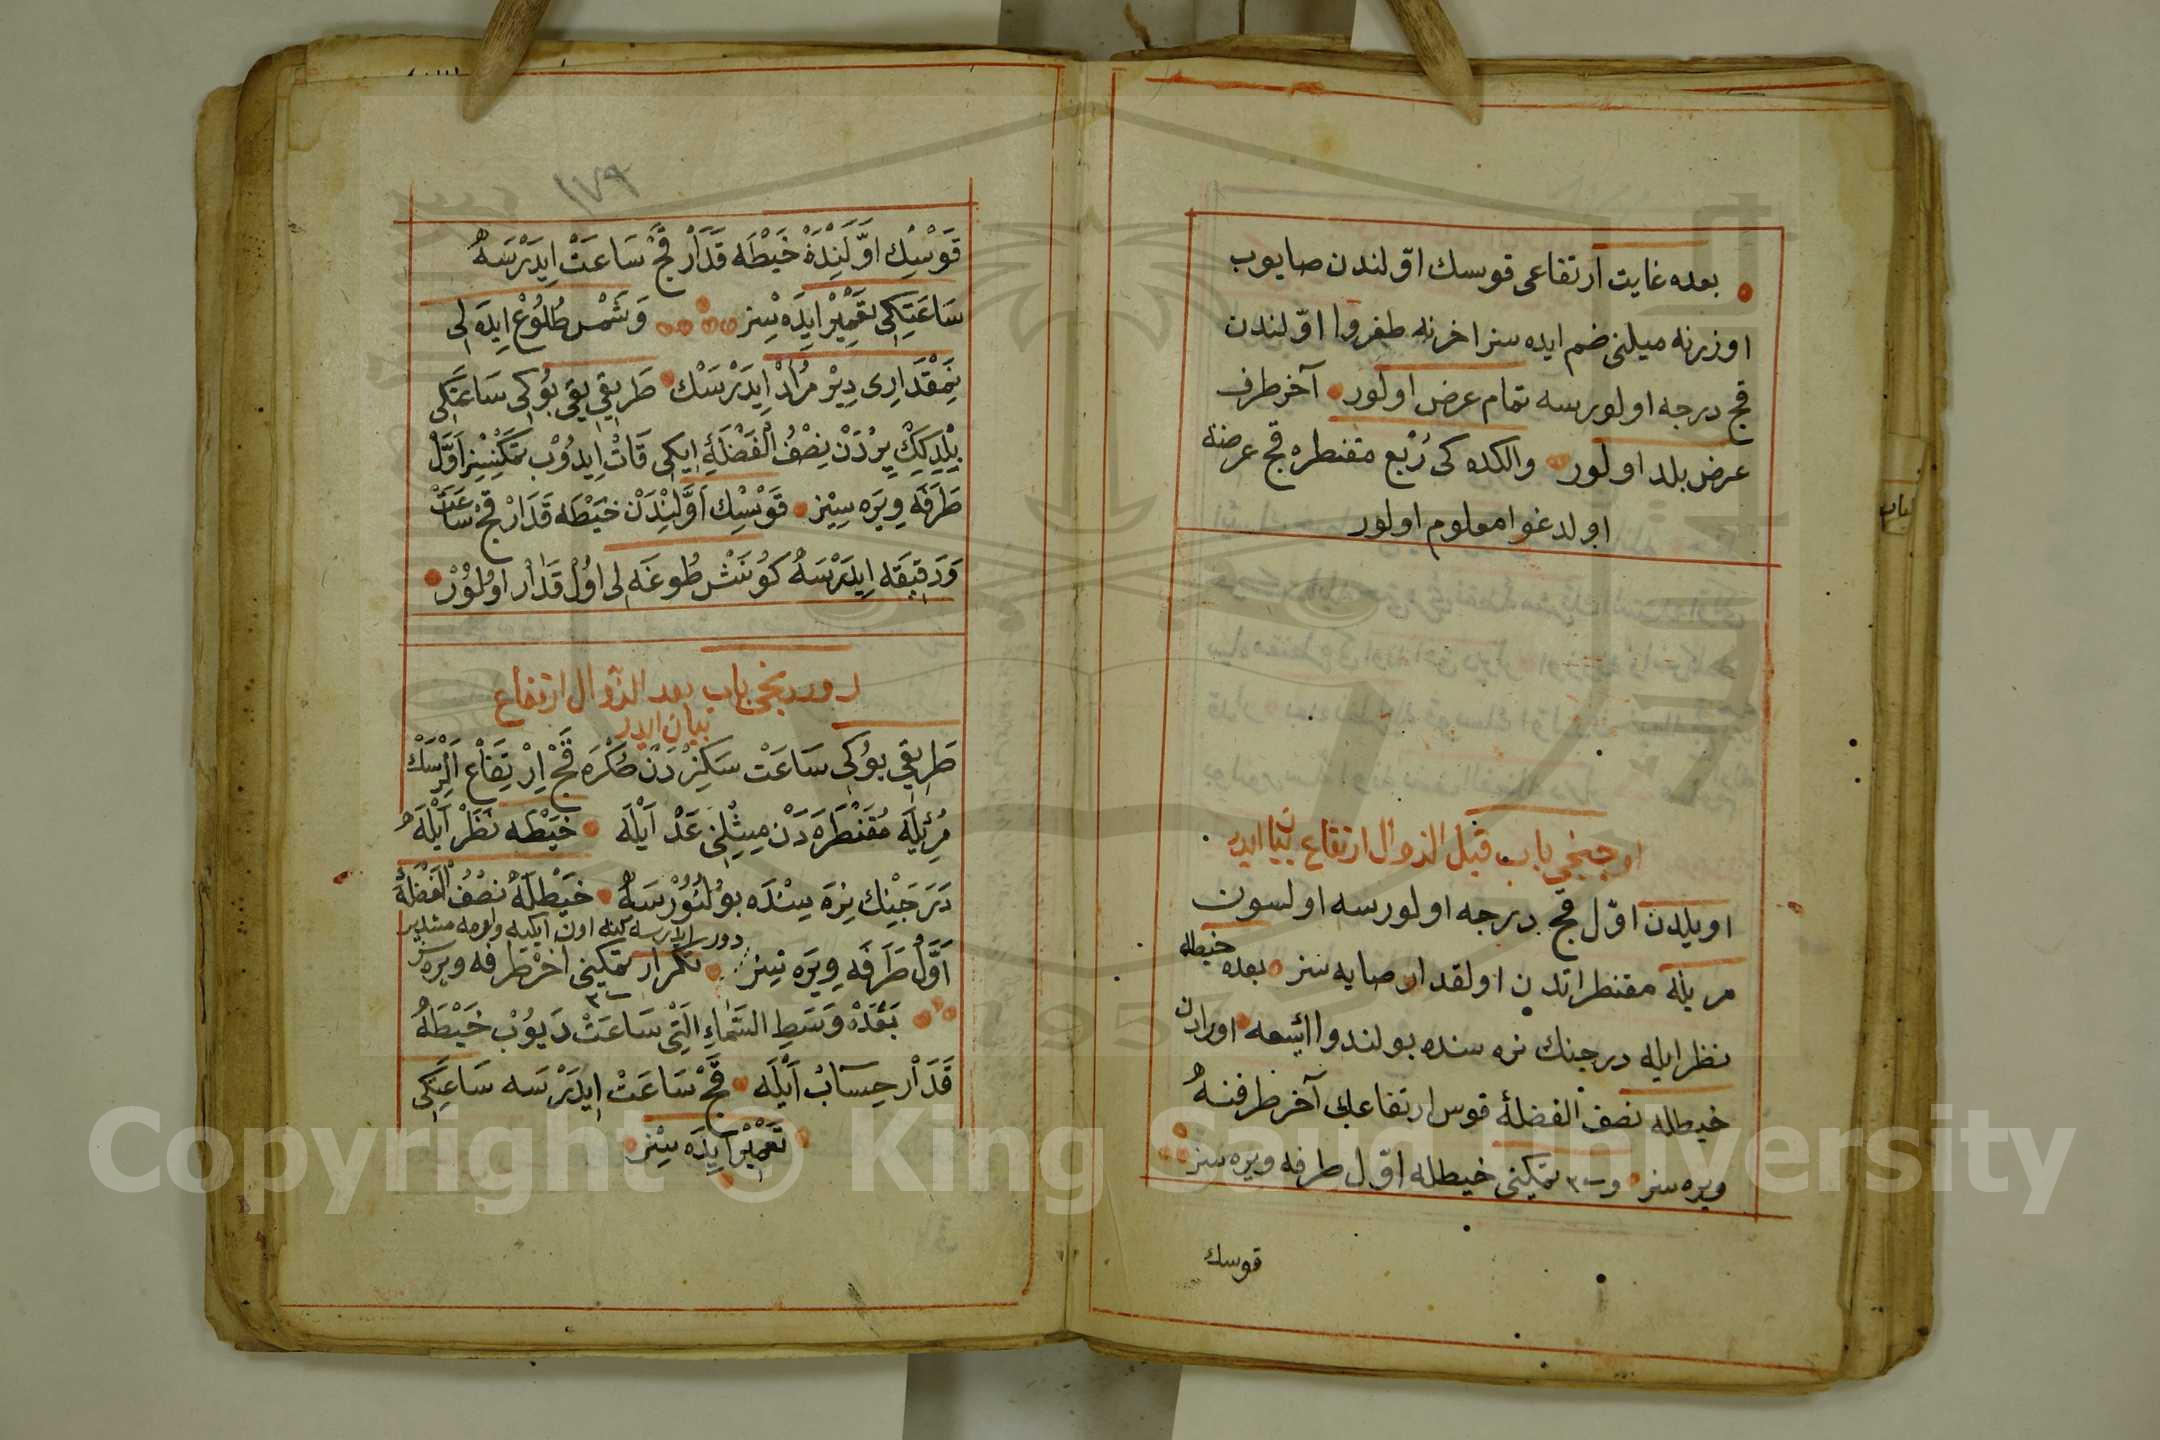 بعده غايت ارتفاعى قوسك اوّلندن صايوب
اوزرنه ميلنى ضم ايده سز اخرنه طغروا اوّلندن
قچ درجه اولورسه تمام عرض اولور آخر طرف
عرض بلد اولور والكده كى رُبع مقنطره قچ عرضه
اولدغوا معلوم اولور
اوجنجى باب قبل الزوال ارتفاع بيان ايدر
اويلدن اوّل قچ درجه اولورسه اولسون
مريله مقنطراتدن اولقدار صايه سز بعده خيطله
نظر ايله درجنك نره سنده بولندوا ائيسه اورادن
خيطله نصف الفضلهٔ قوس ارتفاعك آخر طرفنه
ويره سز و ٣٠ تمكينى خيطله اوّل طرفه ويره سز
قوسك
١٧٣
قَوْسْنِك اوَّلَنْدَهْ خَيْطَه قَدَارْ قَچْ سَاعَتْ اِيدَرْسَهْ
سَاعَتِكِى تَعْمِيرْ اِيدَه سِنِز وَشَمْس طُلُوعْ اِيدَه لِى
نِمِقْدَارِى دِيرْ مُرَادْ اِيدَرْسَكْ طَرِيقِى بُوكِى سَاعَتَكِى
بِلْدِكِكْ يِرْدَنْ نِصْفُ الْفَضْلَهِٔ اِيكِى قَاتْ اِيدُوبْ تَمْكِنْسِز اَوَّلْ
طَرَفَه وِيرَه سِيْز قَوْسْنِك اَوَّلِنْدَنْ خَيْطَه قَدَارْ قَچْ سَاعَتْ
وَدَقِيقَه اِيدَرْسَهْ كُونَشْ طُوغَه لِى اوُلْ قَدَارْ اوُلُورْ
دوردنجى باب بعد الزوال ارتفاع
بيان ايدر
طَرِيقِى بُوكِى سَاعَتْ سَكِزْدَنْ صُكْرَه قَچْ اِرْتِفَاعْ اَلْرْسَكْ
مُرِيلَه مُقَنْطَرَه دَنْ مِيثْلِنِى عَدْ اَيْلَه خَيْطَه نَظَرْ اَيْلَه
دَرَجَنِكْ نِرَه سِنْدَه بُولُنُورْسَهْ خَيْطلَهْ نِصْفُ الْفَضْلَهٔ
اَوَّلْ طَرَفَه وِيرَه سِنِز تكرار تمكينى آخر طرفه ويره سز
بَعْدَهْ وَسَطِ السَّمَاءِ اَلْتِى سَاعَتْ دَيُوبْ خَيْطَهْ
قَدَارْ حِسَابْ اَيْلَه قَچْ سَاعَتْ اِيدَرْسَه سَاعَتِكِى
تَعْمِيرْ اِيدَه سِنِز